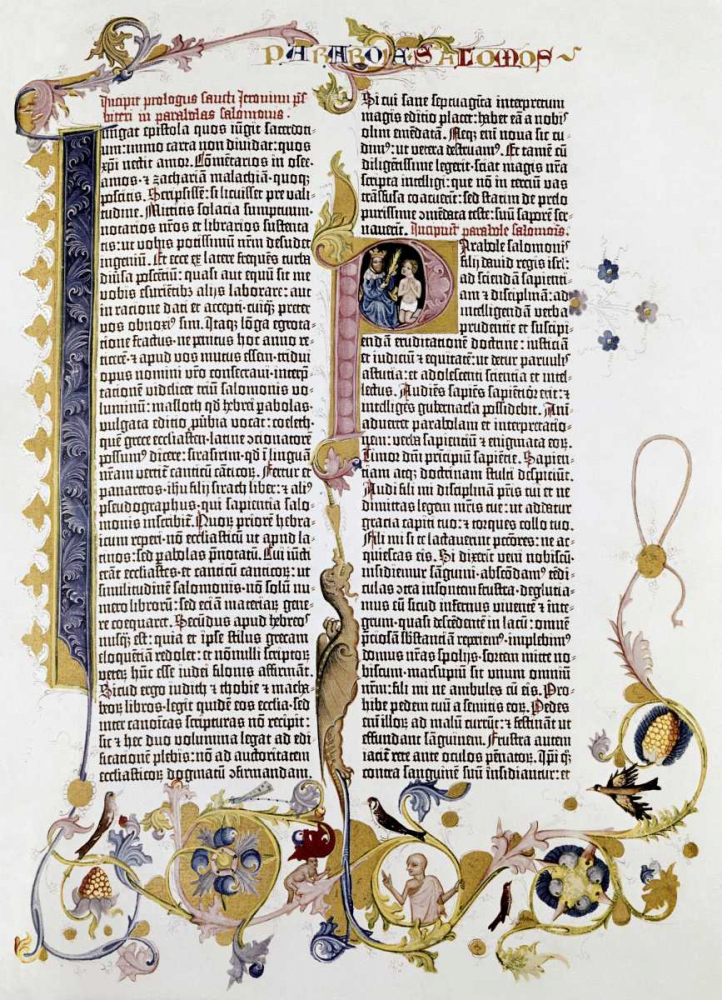 PARABOLAS SALOMOS
Incipit prologus sancti Jeronimi p̄s
biteri in parabolas salomonis.
Iungat epistola quos iūgit sacerdoti-
um: immo carta non dividat: quos
xp̄i nectit amor. Cōmētarios in osee·
amos· ⁊ zachariā malachiā· quoqꝫ
poscitis. Scripsissē: si licuisset pre vali-
tudine. Mittitis solacia sumptuum·
notarios nr̄os et librarios sustenta-
tis: ut vobis potissimū nr̄m desudet
ingeniū. Et ecce ex latere frequēs turba
diūsa poscētiū: quasi aut equū sit me
vobis esurientibꝫ alijs laborare: aut
in ratione dati et accepti· cuiqꝫ preter
vos obnoxiꝰ sim. Itaqꝫ lōga egrota-
tione fractus· ne penitus hoc anno re-
ticerē· ⁊ apud vos mutus essem· tridui
opus nomini vr̄o consecraui· interp̄-
tationē videlicet triū salomonis vo-
luminū: masloth qd̄ hebrei pabolas·
vulgata editio ꝓūbia vocat: coeleth·
quē grece ecclesiasten· latine ↄcionatorē
possumꝰ dicere: sirasirim· qd̄ ī linguā
nr̄am vertit̄ canticū cāticoꝝ. Fertur et
panaretos· ihu filij sirach liber: ⁊ aliꝰ
pseudographus· qui sapientia salo-
monis inscribit̄. Quoꝝ priorē hebra-
icum repperi· nō ecclesiasticū ut apud la-
tinos: sed pabolas p̄notatū. Cui iūcti
erāt ecclesiastes· et canticū canticoꝝ: ut
similitudinē salomonis· nō solū nu-
mero librorū: sed etiā materiaꝝ gene-
re coequaret. Secūdus apud hebreos
nusqꝫ est: quia et ipse stilus grecam
eloquētiā redolet: et nōnulli scriptoꝝ
veteꝝ hūc esse iudei filonis affirmāt.
Sicud ergo iudith ⁊ thobie ⁊ macha-
beoꝝ libros· legit quidē eos ecclia· sed
inter canoīcas scripturas nō recipit:
sic ⁊ hec duo volumina legat ad edi-
ficationē plebis: nō ad auctoritatem
ecclesiasticoꝝ dogmatū ↄfirmandam.
Si cui sane septuagīta interpretum
magis editio placet: habet eā a nobis
olim emēdatā. Neqꝫ em̄ noua sic cu-
dimꝰ: ut vetera destruamꝰ. Et tamē cū
diligētissime legerit· sciat magis nr̄a
scripta intelligi: que nō in terciū vas
trāsfusa coacuerīt: sed statim de prelo
purissime ↄmēdata teste: suū saporē ser-
uauerīt. Incipiunt parabole salomonis.
Parabole salomonis
filij dauid regis isrl̄:
ad sciendā sapienti-
am ⁊ disciplinā: ad
intelligendā verba
prudentie et suscipi-
endā eruditationē doctrine: iusticiā
et iudiciū ⁊ equitatē: ut detur paruulis
astutia: et adolescenti scientia et intel-
lectus. Audiēs sapiēs sapiētior erit: ⁊
intelligēs gubernacla possidebit. Ani-
aduertet parabolam et interpretatio-
nem: verba sapientiū ⁊ enigmata eoꝝ.
Timor dn̄i principiū sapiētie. Sapien-
tiam atqꝫ doctrinam stulti despiciūt.
Audi fili mi disciplinā pr̄is tui et ne
dimittas legem mr̄is tue: ut addatur
gracia capiti tuo: ⁊ torques collo tuo.
Fili mi si te lactauerint pctōres: ne ac-
quiescas eis. Si dixerīt veni nobiscū·
insidiemur sāguini· abscōdamꝰ tēdi-
culas ↄtra insontem frustra· deglutia-
mus eū sicud infernus viuentē ⁊ inte-
grum· quasi descēdentē in lacū: omnē
p̄ciosā substantiā reperiemꝰ· implebimꝰ
domus nr̄as spolijs· sortem mitte no-
biscum· marsupiū sit unum omniū
nr̄m: fili mi ne ambules cū eis. Pro-
hibe pedem tuū a semitis eoꝝ. Pedes
em̄ illoꝝ ad malū currūt: ⁊ festināt ut
effundant sāguinem. Frustra autem
iacit̄ rete ante oculos pēnatoꝝ. Ip̄i qꝫ
contra sanguinē suū insidiantur: et